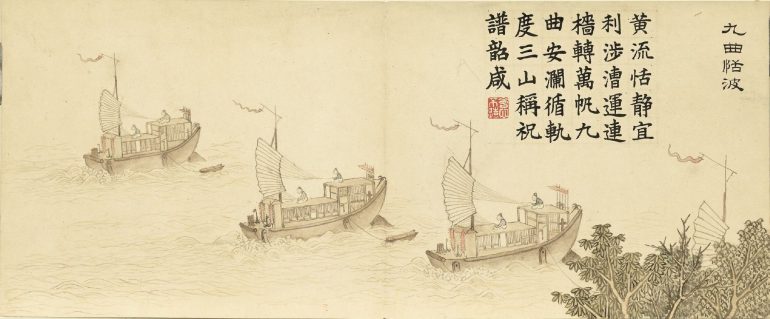 九曲恬波
黃流恬静宜
利涉漕運連
檣轉萬帆九
曲安瀾循軌
度三山稱祝
譜韶咸